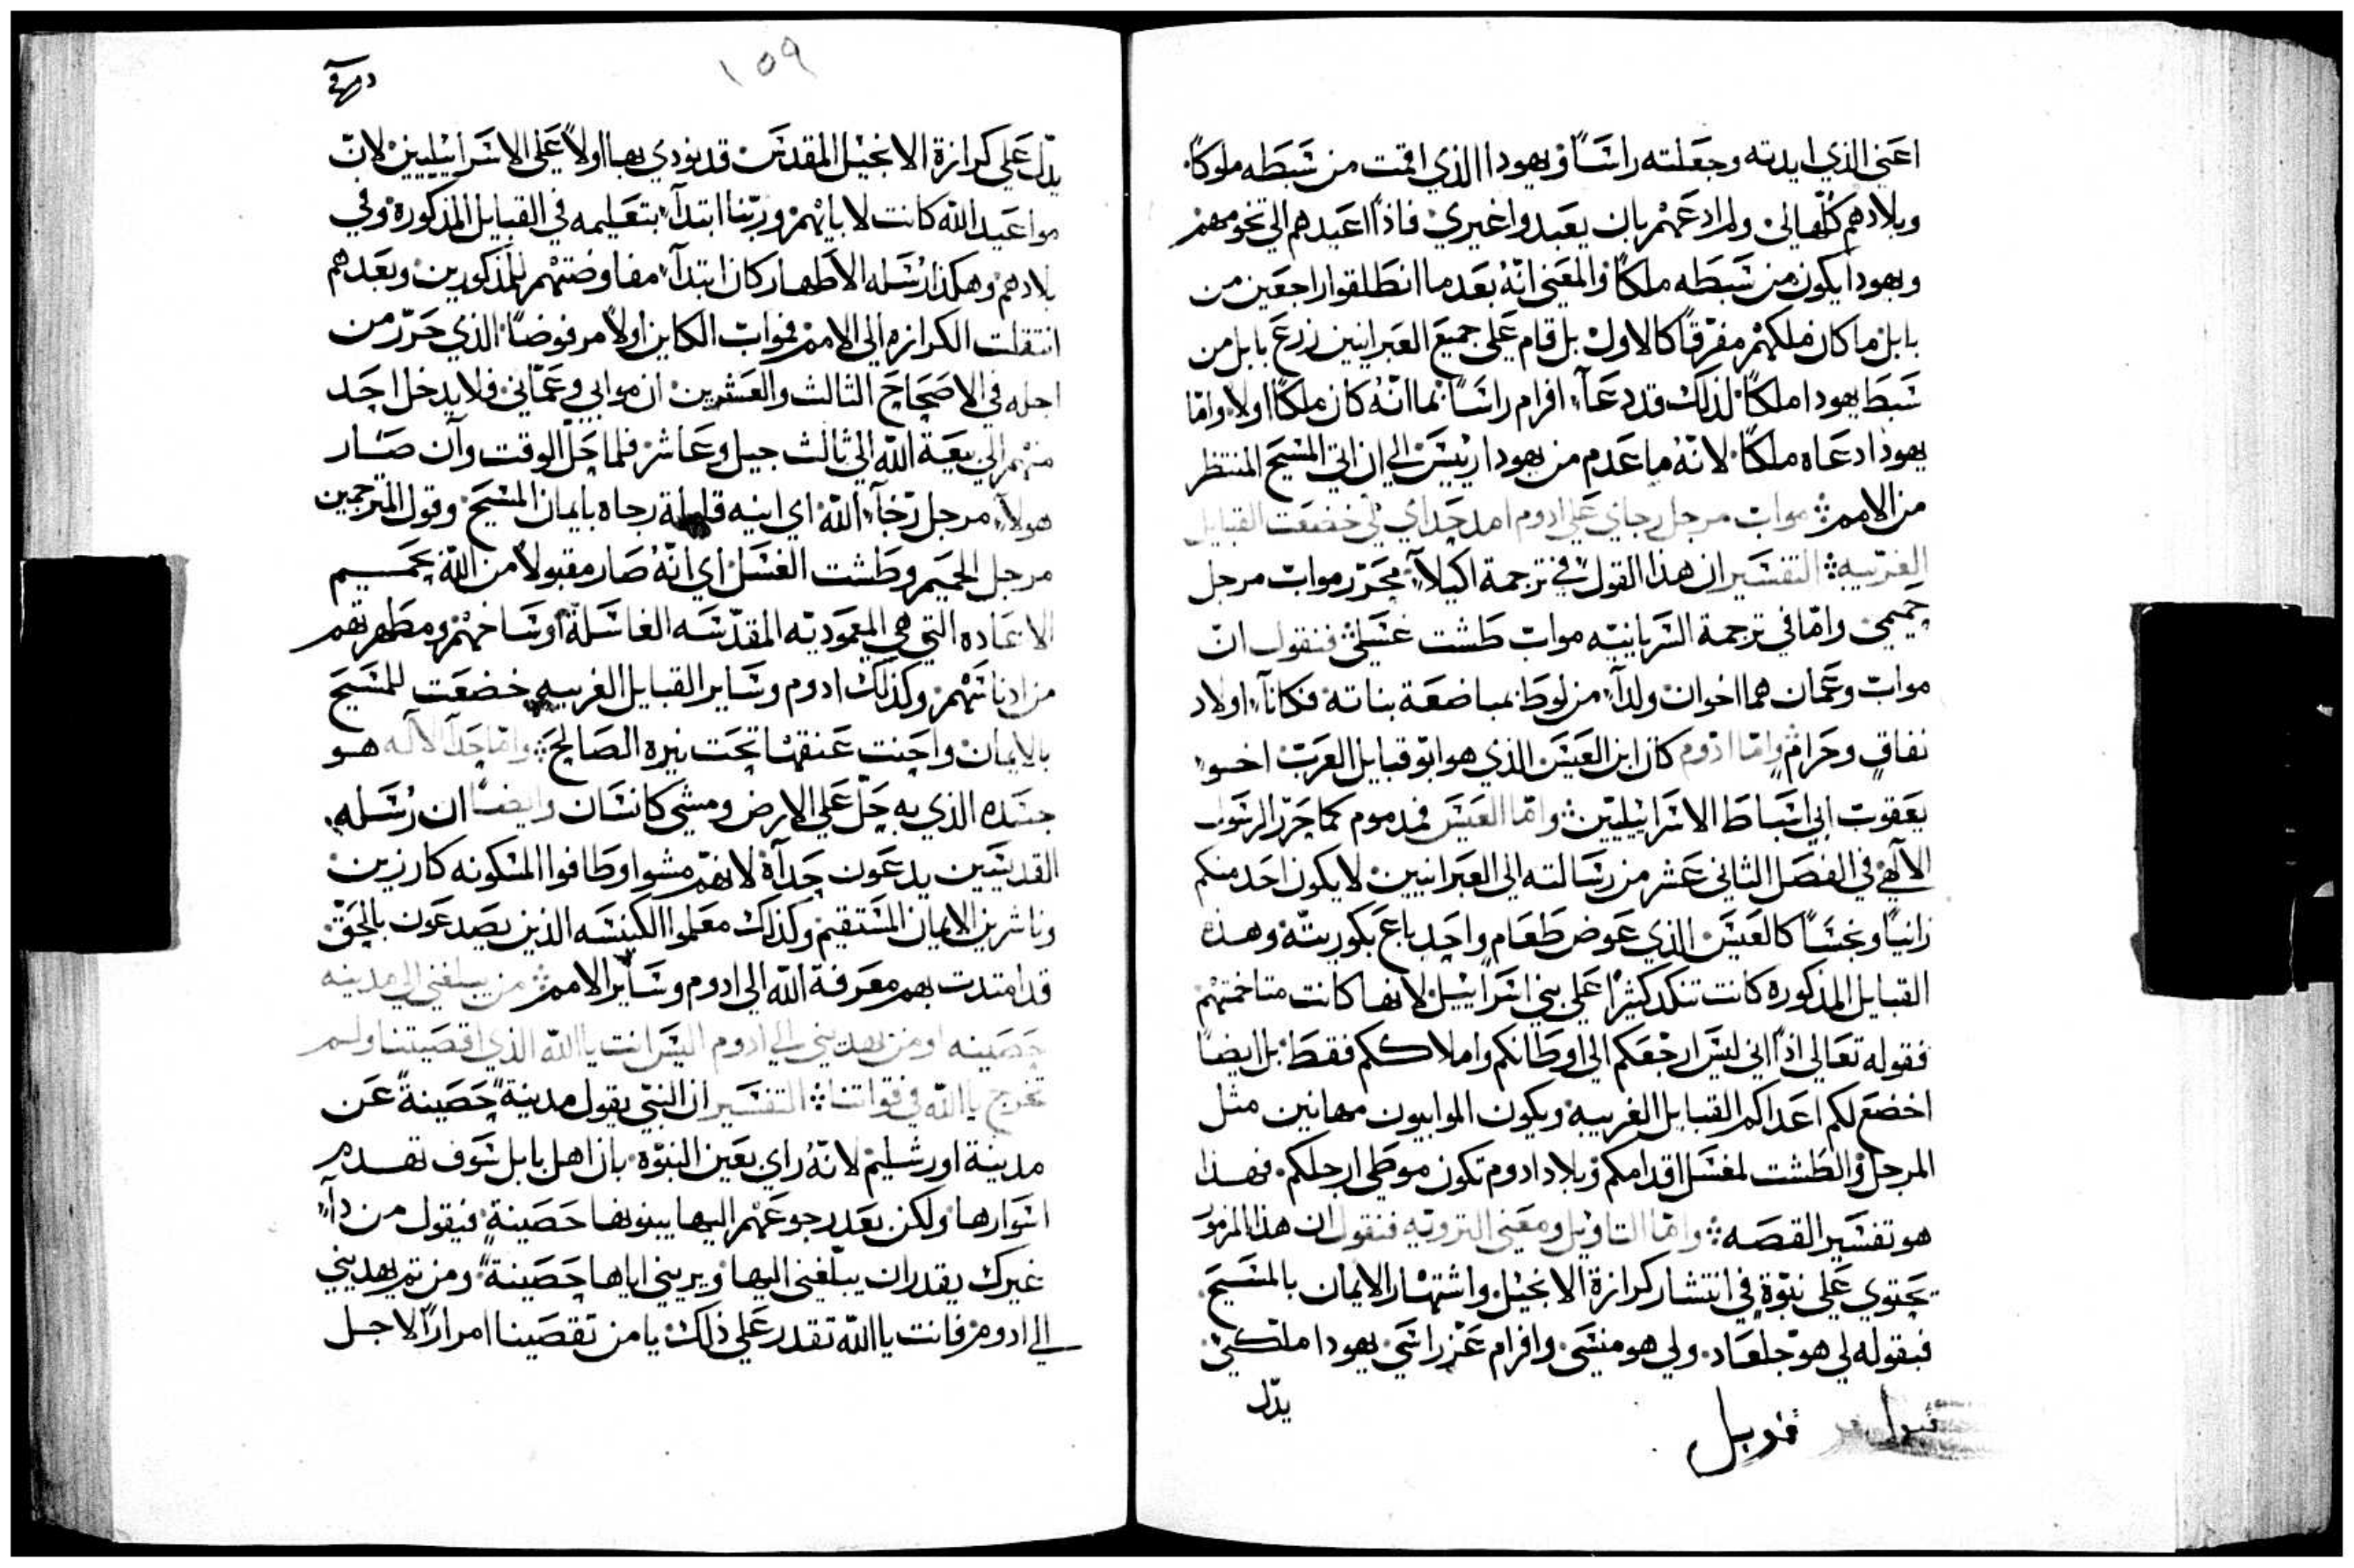 اعني الذي ايدته وجعلته راسًا ويهودا الذي اقمت من سبطه ملوكًا
وبلادهم كلها لي ولم ادعهم بان يعبدوا غيري فاذًا اعيدهم الي تخومهم
ويهودا يكون من سبطه ملكًا والمعني انه بعدما انطلقوا راجعين من
بابل ما كان ملكهم مفرقًا كالاول بل قام علي جميع العبرانيين زرع بابل من
سبط يهودا ملكًا لذلك قد دعا افرام راسًا بما انه كان ملكًا اولاً واما
يهوذا دعاه ملكًا لانه ما عدم من يهودا رئيس الي ان اتي المسيح المنتظر
من الامم مواب مرجل رجاي علي ادوم امد حداي لي خضعت القبايل
الغريبه التفسير ان هذا القول في ترجمة اكيلا محرر مواب مرجل
حميمي واما في ترجمة السريانيه مواب طشت غسلي فنقول ان
مواب وعمان هما اخوان ولدا من لوط بمباضعة بناته فكانا اولاد
نفاق وحرام واما ادوم كان ابن العيس الذي هو ابو قبايل العرب اخو
يعقوب ابي اسباط الاسرائيليين واما العيس فمذموم كما حرر الرسول
الالهي في الفصل الثاني عشر من رسالته الي العبرانيين لا يكون احد منكم
زانيًا ونجسًا كالعيس الذي عوض طعام واحد باع بكوريته وهذه
القبايل المذكورة كانت تنكد كثيرًا علي بني اسرائيل لانها كانت متاخمتهم
فقوله تعالي اذًا اني ليس ارجعكم الي اوطانكم واملاككم فقط بل ايضًا
اخضع لكم اعداكم القبايل الغريبه ويكون الموابيون مهانين مثل
المرجل والطشت لمغسل اقدامكم وبلاد ادوم تكون موطي ارجلكم فهذا
هو تفسير القصه واما التاويل ومعني الترويه فنقول ان هذا المزمور
يحتوي علي نبوة في انتشار كرازة الانجيل واشتهار الايمان بالمسيح
فبقوله لي هو جلعاد ولي هو منسي وافرام عز راسي يهودا ملكي
يدل
قوبل
١٥٩
يدل علي كرازة الانجيل المقدس قد نودي بها اولاً علي الاسرائيليين لان
مواعيد الله كانت لابايهم وربنا ابتدا بتعليمه في القبايل المذكورة وفي
بلادهم وهكذا رسله الاطهار كان ابتدا مفاوضتهم للمذكورين وبعدهم
انتقلت الكرازه الي الامم فمواب الكاين اولاً مرفوضًا الذي حرر من
اجله في الاصحاح الثالث والعشرين ان موابي وعماني فلا يدخل احد
منهم الي بيعة الله الي ثالث جيل وعاشر فلما حل الوقت وآن صار
هولا مرجل رجا الله اي ابنه قابلة رجاه بايمان المسيح وقول المترجمين
مرجل الحميم وطشت الغسل اي انه صار مقبولاً من الله بحميم
الاعاده التي هي المعموديه المقدسه الغاسلة اوساخهم ومطهرتهم
من ادناسهم وكذلك ادوم وساير القبايل الغريبه خضعت للمسيح
بالايمان واحنت عنقها تحت نيره الصالح واما حدا الاله هو
جسده الذي به حل علي الارض ومشي كانسان وايضًا ان رسله
القديسين يدعون حداه لانهم مشوا وطافوا المسكونه كارزين
وناشرين الايمان المستقيم وكذلك معلموا الكنيسه الذين يصدعون بالحق
قد امتدت بهم معرفة الله الي ادوم وساير الامم من يبلغني الي مدينه
حصينه او من يهديني الي ادوم اليس انت يا الله الذي اقصيتنا ولم
تخرج يا الله في قواتنا التفسير ان النبي يقول مدينة حصينة عن
مدينة اورشليم لانه راي بعين النبوه بان اهل بابل سوف تهدم
اسوارها ولكن بعد رجوعهم اليها يبنونها حصينة فيقول من ذا
غيرك يقدر ان يبلغني اليها ويريني اياها حصينة ومن ثم يهديني
الي ادوم فانت يا الله تقدر علي ذلك يا من تقصينا امرارًا لاجل